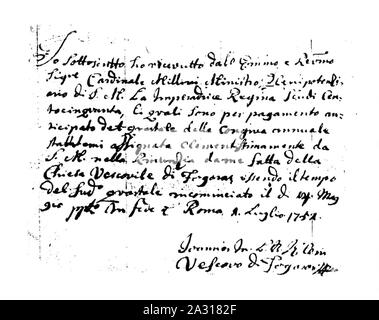 Io Sottoscritto ho ricevuto dal Emino e Revmo
Sigre Cardinale Millini Ministro Plenipotenzi
ario di S. M. La Imperadrice Regina Scudi Cen
tocinquanta, li quali sono per pagamento an
ticipato del quartale della Congrua annuale
assignata Clementissimamente da
S. M. nella Rinunzia da me fatta della
Chiesa Vescovile di Fogaras essendo il tempo
del Sudo quartale incominciato il d. Mag
gio In fede Roma 1. Luglio 1752
Vescovo di
alamy
Image ID: 2A3182F
www.alamy.com